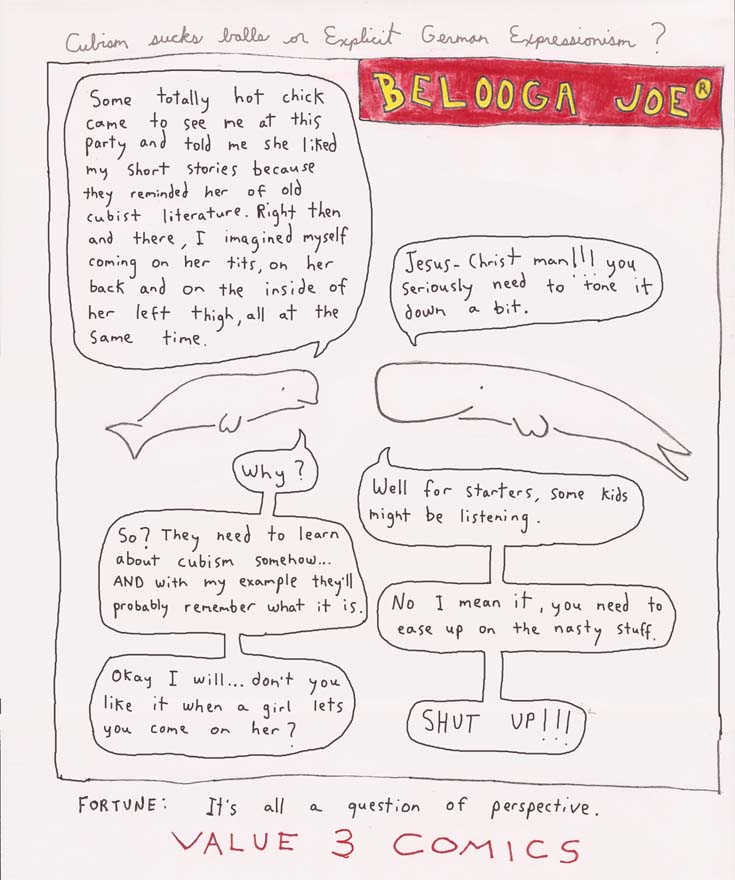 Cubism sucks balls or Explicit German Expressionism ?
BELOOGA JOE®
Some totally hot chick
came to see me at this
party and told me she liked
my short stories because
they reminded her of old
cubist literature. Right then
and there, I imagined myself
coming on her tits, on her
back and on the inside of
her left thigh, all at the
same time.
Jesus-Christ man!!! you
seriously need to tone it
down a bit.
Why?
Well for starters, some kids
might be listening.
So? They need to learn
about cubism somehow...
AND with my example they'll
probably remember what it is.
No I mean it, you need to
ease up on the nasty stuff.
Okay I will... don't you
like it when a girl lets
you come on her?
SHUT UP!!!
FORTUNE: It's all a question of perspective.
VALUE 3 COMICS